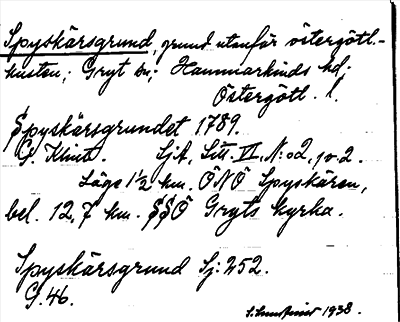 Spyskärsgrund, grund utanför östergötl.-
kusten; Gryt sn; Hammarkinds hd;
Östergötl. l.
Spyskärsgrundet 1789.
G. Klint. Sjk, Litt. VI. N:o 2,
Läge 1½ km. ÖNÖ Spyskären,
bel. 12,7 km. SSÖ Gryts kyrka.
Spyskärsgrund Sj: 252.
G. 46.
1938.